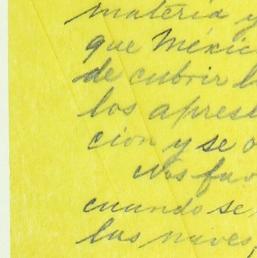 materia y
que Méxic
de cubrir l
los aprest
ción y se o
Nos fav
cuando se
las naves,